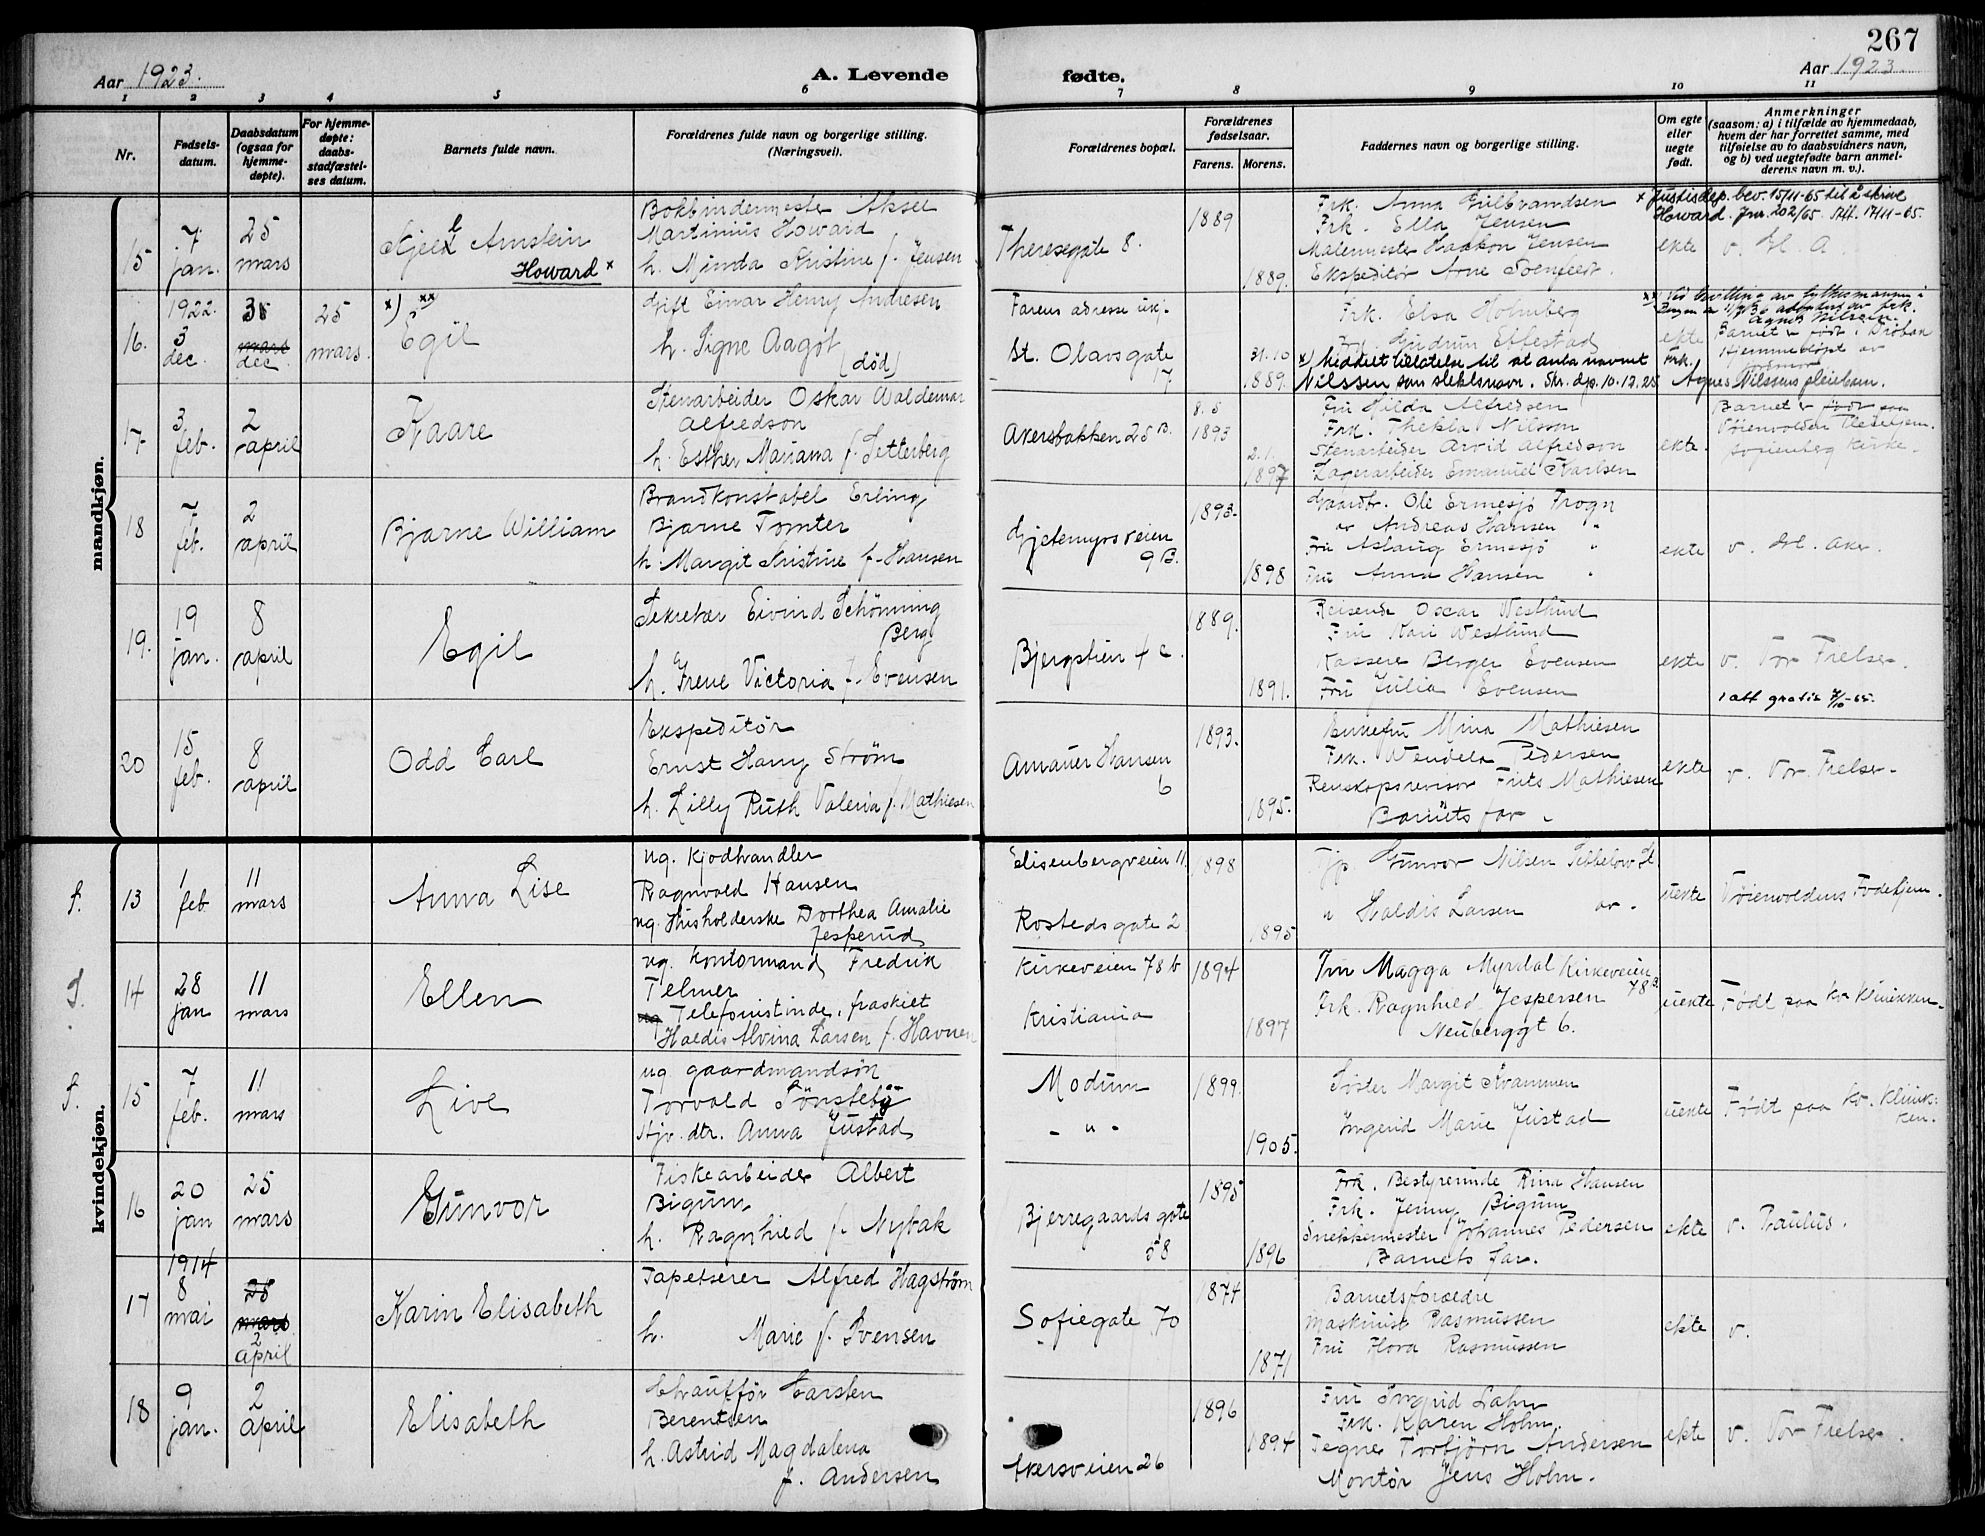 267
Aar 1923.
A. Levende
fødte.
Aar 1923
1 2 3 4 5 6 7 8 9 10 11
Nr.
Fødsels-
datum.
Daabsdatum
(ogsaa for
hjemme-
døpte).
For hjemme-
døpte:
daabs-
stadfæstel-
ses datum.
Barnets fulde navn.
Forældrenes fulde navn og borgerlige stilling.
(Næringsvei).
Forældrenes bopæl.
Forældrenes
fødselsaar.
Farens. Morens.
Faddernes navn og borgerlige stilling.
Om egte
eller
uegte
født.
Anmerkninger
(saasom: a) i tilfælde av hjemmedaab,
hvem der har forrettet samme, med
tilføielse av to daabsvidners navn,
og b) ved uegtefødte barn anmel-
derens navn m. v.).
mandkjøn.
15
7
jan.
25
mars
Kjell Arnstein
Howard x
Bokbindermester Aksel
Martinius Howard
h. Minda Kristine f. Jensen
Theresegate 8.
1889
1889.
Frk. Anna Gulbrandsen
Frk. Ella Jensen
Malermester Haakon Jensen
Ekspeditør Arne Svenfeldt.
ekte
x Justisdep. bev. 15/11-65 til å skrive
Howard. Jnr. 202/65. Att. 17/11-65.
16.
1922.
3
dec.
dec.
25
mars.
x) xx)
Egil
Gift Einar Henry Andresen
h. Signe Aagot
(død)
Farens adresse ukj.
St. Olavsgate
17.
31.10
1889.
Frk. Elsa Holmberg
Frk. Gudrun Effestad
x) Meddelt tillatelse til at anta navnet
Nilssen som slektsnavn. Skr. dp. 10.12.25
ekte
Barnet er født i Drøbak
Hjemmedøpt av
Frk.
Agnes Nilssens pleiebarn.
17.
3
feb.
2
april
Kaare
Stenarbeider Oskar Valdemar
Alfredson
h. Esther Mariana f. Setterberg
Akersbakken 25 B.
8. 5
1893
2. 1.
1897
Fru Hilda Alfredsen
Frk. Thekla Nilsson
Stenarbeider Arvid Alfredson
Lagerarbeider Emanuel Karlsen
ekte.
Barnet er født paa
Tøienvolden Fødehjem.
Sofienberg Kirke.
18
7
feb.
2
april
Bjarne William
Brandkonstabel Erling
Bjarne Tomter
h. Margit Kristine f. Hansen
Gjetemyrsveien
9 B.
1893.
1898
Gaardbr. Ole Ermesjø Frogn
" Andreas Hansen "
Fru Aslaug Ermesjø "
Fru Anna Hansen "
ekte
v. Gl. Aker.
19.
19
jan.
8
april
Egil
Sekretær Eivind Schønning
Berg
h. Irene Victoria f. Evensen
Bjergstien 4 c.
1889.
1891.
Reisende Oscar Westlund
Fru Kari Westlund
Kasserer Berger Evensen
Fru Julia Evensen
ekte
v. Vor Frelser.
1 att gratis 7/10-65.
20
15
feb.
8
april
Odd Carl
Ekspeditør
Ernst Harry Strøm
h. Lilly Ruth Valeria f. Mathiesen
Amauer Hansen
6
1893.
1895.
Enkefru Mina Mathiesen
Frk. Wendela Pedersen
Renskapsrevisor Frits Mathiesen
Barnets far.
ekte
v. Vor Frelser.
kvindekjøn.
S.
13
1
feb
11
mars
Anna Lise
ug. Kjødhandler
Ragnvald Hansen
ug. Husholderske Dorthea Amalie
Jesperud
Elisenbergveien 11.
Rostedsgate 2
1898
1895
Tjp. Gunvor Nilsen
" Haldis Larsen
uekte
Tøienvoldens Fødehjem.
S.
14
28
jan
11
mars
Ellen
ug. Kontormand Fredrik
Telmer
Telefonistinde, fraskilt
Haldis Alvina Larsen f. Havnen
Kirkeveien 78 b
Kristiania
1894
1897
Fru Magga Myrdal Kirkeveien
78 B.
Frk. Ragnhild Jespersen
Neuberggt 6.
uekte
Født paa Kv Klinikken.
S.
15
7
feb.
11
mars
Live
ug gaardmandsøn
Torvald Sønsteby
Hjv. dtr. Anna Justad
Modum
- " -
1899
1905.
Søster Margit Krammen
Ingerid Marie Justad
uekte
Født paa Kv. Klinik-
ken.
16
20
jan
25
mars
Gunvor
Fiskearbeider Albert
Bigum
h. Ragnhild f. Nybak
Bjerregaards gate
58
1895
1896
Frk. Bestyrerinde Rina Hansen
Frk. Jenny Bigum
Snekkermester Johannes Pedersen
Barnets far.
ekte
v. Paulus.
17
1914
8
mai
2
april
Karin Elisabeth
Tapetserer Alfred Hagstrøm
h. Marie f. Svensen
Sofiegate 70
1874
1871
Barnets forældre
Maskinist Rasmussen
Fru Flora Rasmussen
ekte
v.
18
9
jan.
2
April
Elisabeth
Chauffør Carsten
Berentsen
h. Astrid Magdalena
f. Andersen
Akersveien 26
1896
1894
Fru Ingrid Lahn
Frk. Karen Holm.
Tegner Torbjørn Andersen
Montør Jens Holm.
ekte
v. Vor Frelser.